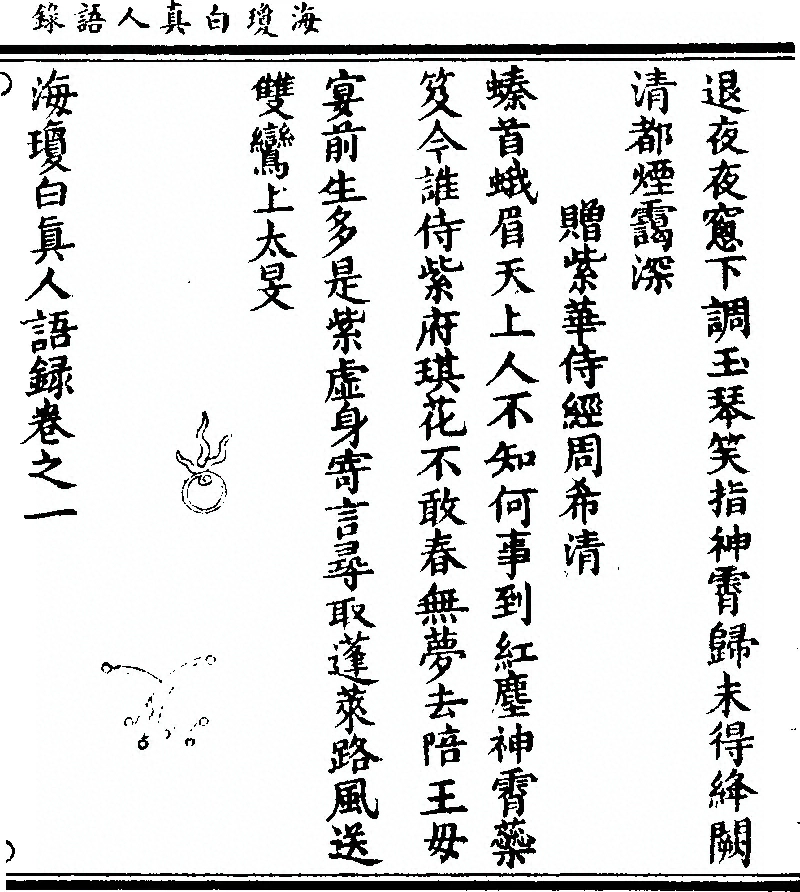 海瓊白真人語錄
退夜夜窻下調玉琴笑指神霄歸未得絳闕
清都煙靄深
贈紫華侍經周希清
螓首蛾眉天上人不知何事到紅塵神霄蘂
笈今誰侍紫府琪花不敢春無夢去陪王母
宴前生多是紫虛身寄言尋取蓬萊路風送
雙鸞上太旻
海瓊白眞人語録卷之一